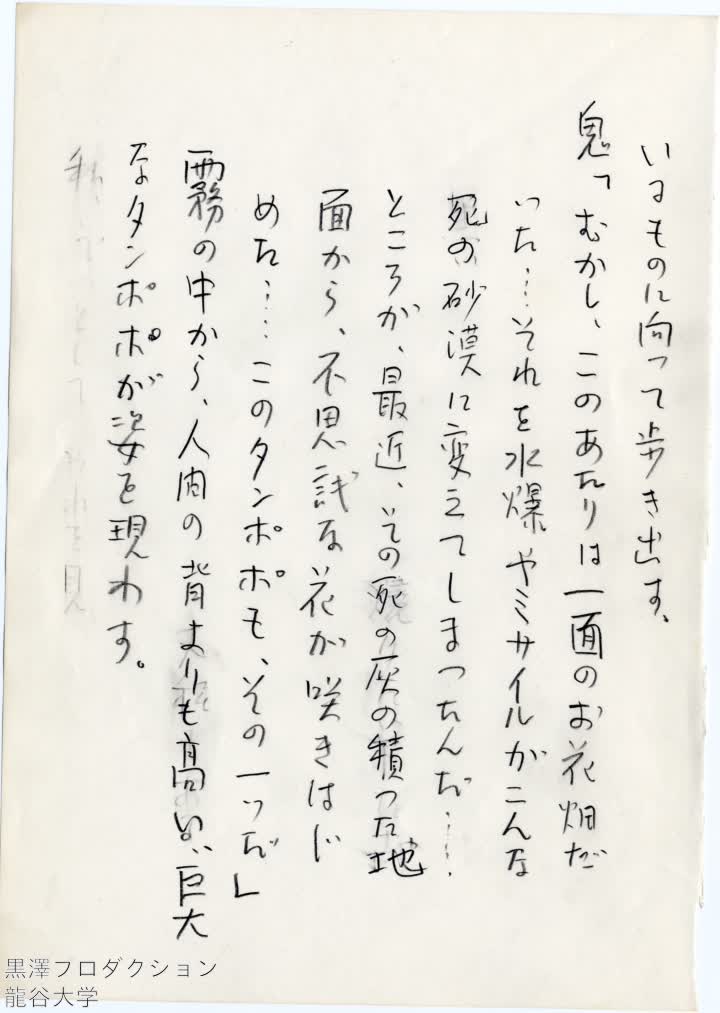 いるものに向って歩き出す、
鬼「むかし、このあたりは一面のお花畑だ
った…それを水爆やミサイルがこんな
死の砂漠に変えてしまったんだ……
ところが、最近、その死の灰の積った地
面から、不思議な花が咲きはじ
めた……このタンポポも、その一つだ」
霧の中から、人肉の背よりも高い、巨大
なタンポポが姿を現わす。
黒澤プロダクション
龍谷大学